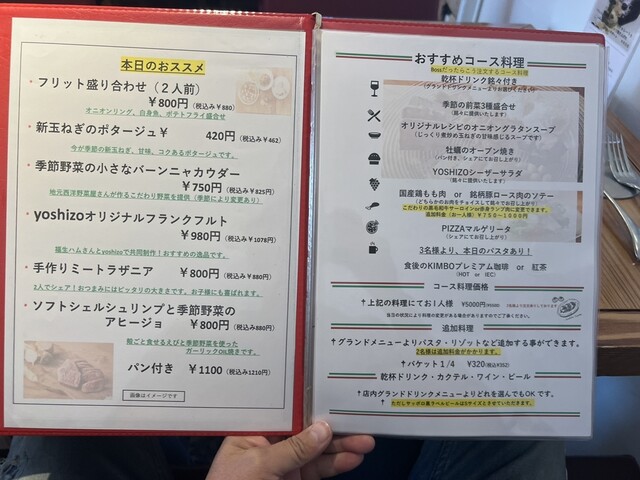 本日のおススメ
・フリット盛り合わせ（２人前）
￥800円（税込み￥880）
オニオンリング、白身魚、ポテトフライ盛合せ
・新玉ねぎのポタージュ￥ 420円（税込み￥462）
今が季節の新玉ねぎ、甘味、コクあるポタージュです。
・季節野菜の小さなバーンニャカウダー
￥750円（税込み￥825）
地元西洋野菜屋さんが作るこだわり野菜を提供（季節により変更あり）
・yoshizoオリジナルフランクフルト
￥980円（税込み￥1078円）
福生ハムさんとyoshizoで共同制作！おすすめの逸品です。
・手作りミートラザニア ￥800円（税込み￥880）
2人でシェア！おつまみにはピッタリの大きさです。お子様にも喜ばれます。
・ソフトシェルシュリンプと季節野菜の
アヒージョ ￥800円（税込み880）
殻ごと食せるえびと季節野菜を使った
ガーリックOIL焼きです。
パン付き ￥1100（税込み1210円）
画像はイメージです
おすすめコース料理
Bossだったらこう注文するコース料理
乾杯ドリンク銘々付き
（グランドドリンクメニューよりお選びください）
季節の前菜3種盛合せ
（銘々に提供いたします）
オリジナルレシピのオニオングラタンスープ
（じっくり煮炒め玉ねぎの甘味感じるスープです）
牡蠣のオーブン焼き
（パン付き、シェアにてお召し上がり）
YOSHIZOシーザーサラダ
（銘々に提供いたします）
国産鶏もも肉 or 銘柄豚ロース肉のソテー
（どちらかのお肉をチョイスして銘々でお召し上がり）
こだわりの黒毛和牛サーロインor赤身ランプ肉に変更できます。
追加料金（お一人様）￥７５０～１０００円
PIZZAマルゲリータ
（シェアにてお召し上がり）
3名様より、本日のパスタあり！
食後のKIMBOプレミアム珈琲 or 紅茶
（HOT or IEC）
コース料理価格
↑上記の料理にてお1人様 ￥5000円
当日の状況により料理の変更がある場合がありますのでご了承ください。
追加料理
↑グランドメニューよりパスタ・リゾットなど追加する事ができます。
2名様は追加料金がかかります。
↑バケット１/４ ￥320（税込￥352）
乾杯ドリンク・カクテル・ワイン・ビール
↑店内グランドドリンクメニューよりどれを選んでもOKです。
↑ただしサッポロ黒ラベルビールはSサイズとさせていただきます。